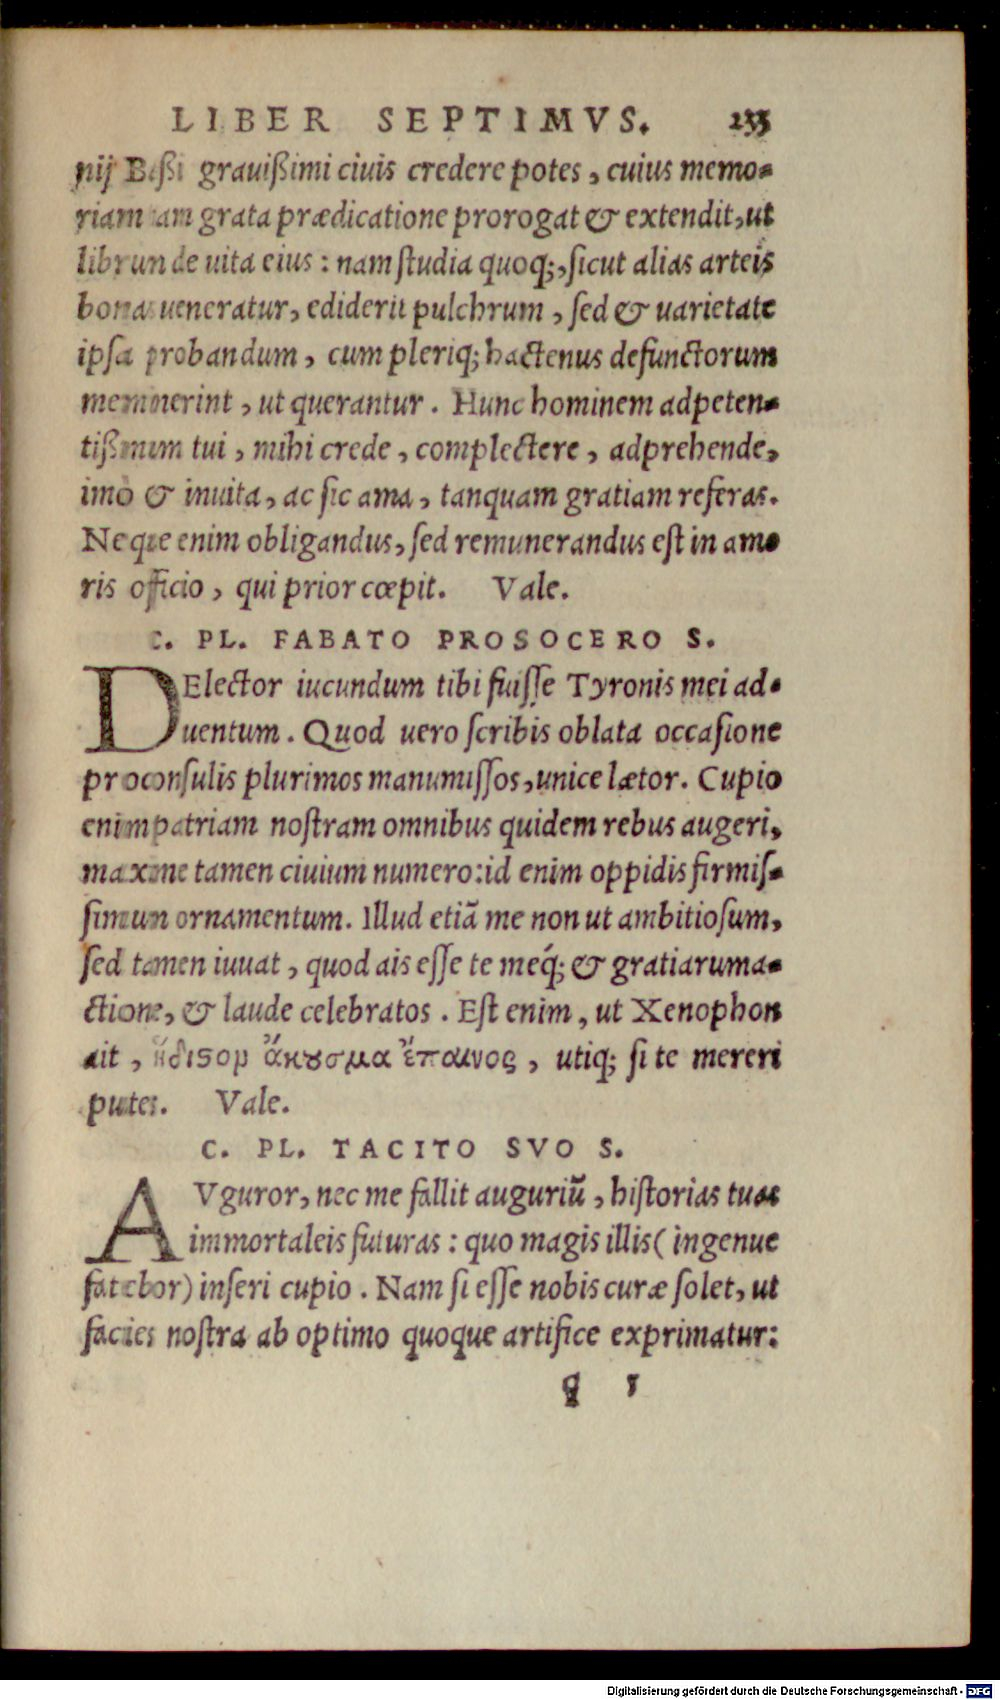 LIBER SEPTIMVS. 233
nij Baßi grauißimi ciuis credere potes, cuius memo-
riam tam grata prædicatione prorogat & extendit, ut
librum de uita eius: nam studia quoq;, sicut alias arteis
bonas ueneratur, ediderit pulchrum, sed & uarietate
ipsa probandum, cum pleriq; hactenus defunctorum
meminerint, ut querantur. Hunc hominem adpeten-
tißimum tui, mihi crede, complectere, adprehende,
imò & inuita, ac sic ama, tanquam gratiam referas.
Neque enim obligandus, sed remunerandus est in amo
ris officio, qui prior cœpit. Vale.
C. PL. FABATO PROSOCERO S.
DElector iucundum tibi fuisse Tyronis mei ad-
uentum. Quod uero scribis oblata occasione
proconsulis plurimos manumissos, unice lætor. Cupio
enim patriam nostram omnibus quidem rebus augeri,
maxime tamen ciuium numero: id enim oppidis firmis-
simum ornamentum. Illud etiã me non ut ambitiosum,
sed tamen iuuat, quod ais esse te meq́; & gratiarum a-
ctione, & laude celebratos. Est enim, ut Xenophon
ait, ἥδιϛον ἄκȣσμα ἔπαινος, utiq; si te mereri
putes. Vale.
C. PL. TACITO SVO S.
AVguror, nec me fallit auguriũ, historias tuas
immortaleis futuras: quo magis illis (ingenue
fatebor) inseri cupio. Nam si esse nobis curæ solet, ut
facies nostra ab optimo quoque artifice exprimatur:
Digitalisierung gefördert durch die Deutsche Forschungsgemeinschaft - DFG